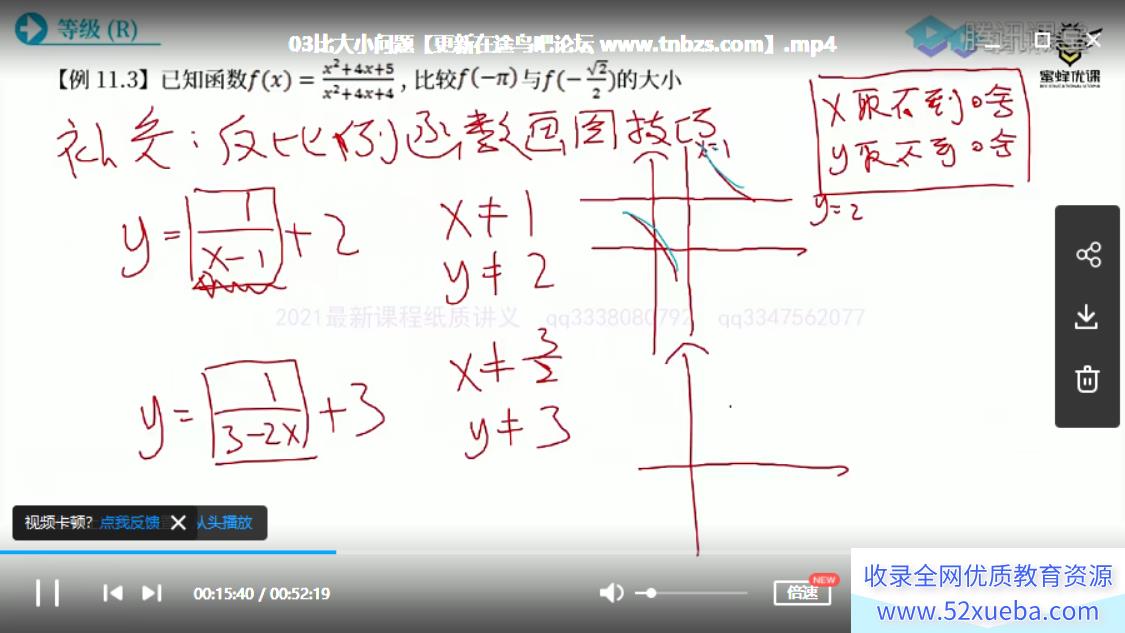 等级 (R)
03比大小问题【更新在途鸟吧论坛 www.tnbzs.com】.mp4
腾讯课堂
蜜蜂优课
【例 11.3】已知函数f(x) = \frac{x²+4x+5}{x²+4x+4}, 比较f(−π)与f(−\frac{√2}{2})的大小
补充:反比例函数画图技巧
x取不到啥
y取不到啥
x=1
y=2
y = \frac{1}{x-1} + 2
x ≠ 1
y ≠ 2
2021最新课程纸质讲义 qq3338080792 qq3347562077
y = \frac{1}{3-2x} + 3
x ≠ \frac{3}{2}
y ≠ 3
视频卡顿? 点我反馈 从头播放
00:15:40 / 00:52:19
倍速
NEW
收录全网优质教育资源
www.52xueba.com